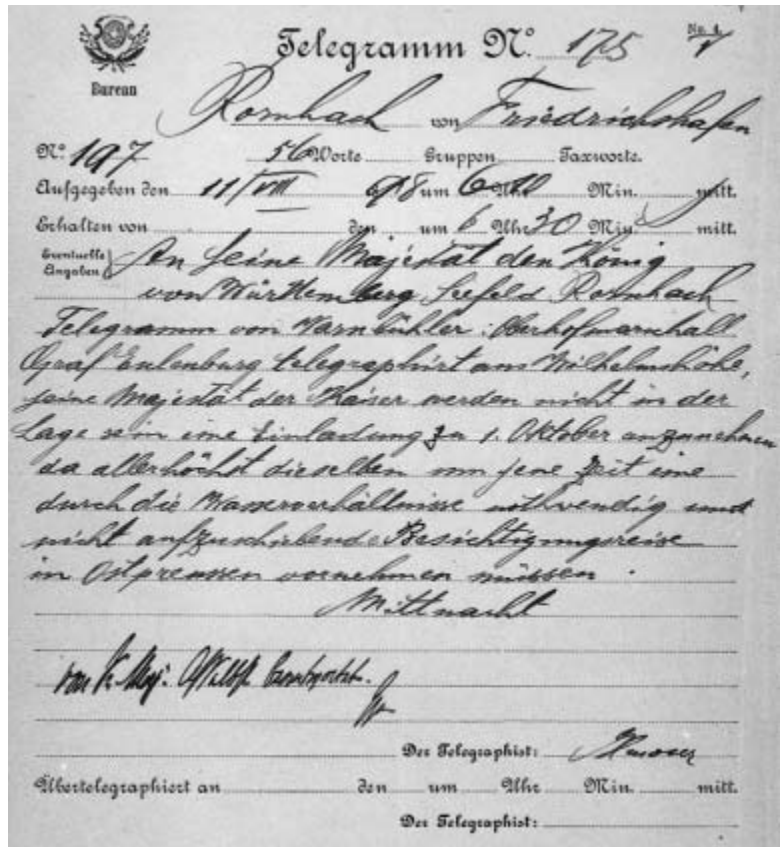 Telegramm Nº 175 No. 4.
Bureau
Rorschach von Friedrichshafen
Nº 197 56 Worte Gruppen Taxworte.
Aufgegeben den 11/VIII 98 um 6 Uhr Min. mitt.
Erhalten von den um 6 Uhr 30 Min. mitt.
Eventuelle Angaben An seine Majestät den König
von Württemberg Seefeld Rorschach
Telegramm von Varnbühler: Oberhofmarschall
Graf Eulenburg telegraphirt aus Wilhelmshöhe,
seine Majestät der Kaiser werden nicht in der
Lage sein eine Einladung zu 1. Oktober anzunehmen
da allerhöchst dieselben um jene Zeit eine
durch die Wasserverhältnisse nothwendig und
nicht aufzuschiebende Besichtigungsreise
in Ostpreussen vornehmen müssen.
Mittnacht
Der Telegraphist:
Übertelegraphiert an den um Uhr Min. mitt.
Der Telegraphist: